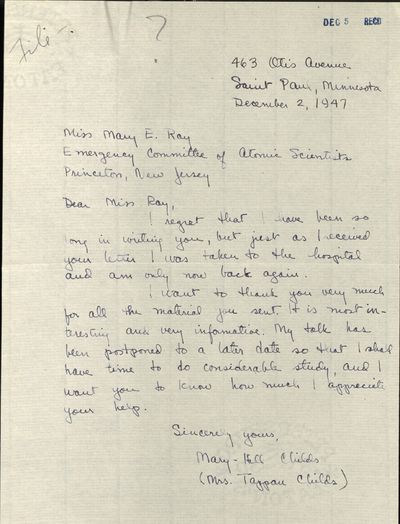 File -
?
DEC 5 RECD
463 Otis Avenue
Saint Paul, Minnesota
December 2, 1947
Miss Mary E. Ray
Emergency Committee of Atomic Scientists
Princeton, New Jersey
Dear Miss Ray,
I regret that I have been so
long in writing you, but just as I received
your letter I was taken to the hospital
and am only now back again.
I want to thank you very much
for all the material you sent. It is most in-
teresting and very informative. My talk has
been postponed to a later date so that I shall
have time to do considerable study, and I
want you to know how much I appreciate
your help.
Sincerely yours,
Mary-Hill Childs
(Mrs. Tappan Childs)